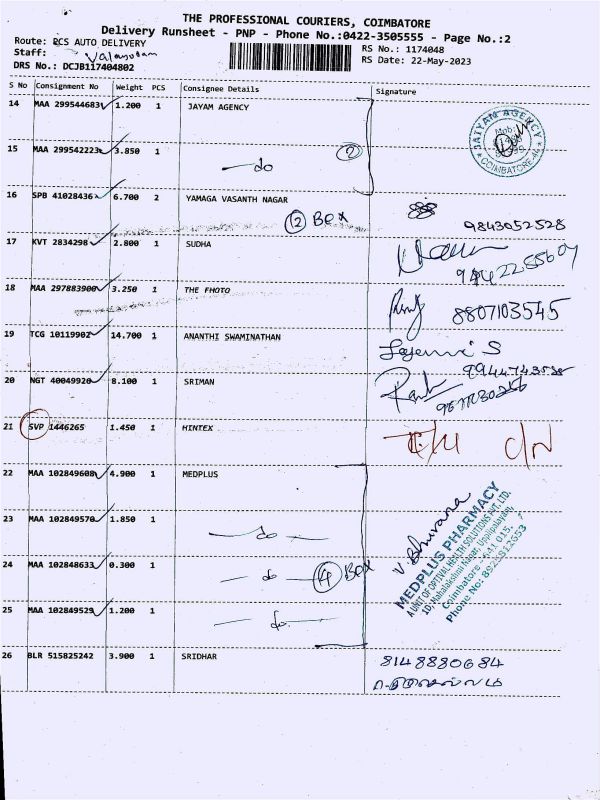 THE PROFESSIONAL COURIERS, COIMBATORE
Delivery Runsheet - PNP - Phone No.:0422-3505555 - Page No.:2
Route: PCS AUTO DELIVERY
RS No.: 1174048
Staff:
RS Date: 22-May-2023
DRS No.: DCJB117404802
S No Consignment No Weight PCS Consignee Details Signature
14 MAA 299544683 1.200 1 JAYAM AGENCY
JAIYAM AGENCY
COIMBATORE-44
15 MAA 299542223 3.850 1 do 2
16 SPB 41028436 6.700 2 YAMAGA VASANTH NAGAR
2 Box 9843052528
17 KVT 2834298 2.800 1 SUDHA
18 MAA 297883900 3.250 1 THE FHOTO
8807103545
19 TCG 10119902 14.700 1 ANANTHI SWAMINATHAN
20 NGT 40049920 8.100 1 SRIMAN
21 SVP 1446265 1.450 1 HINTEX
22 MAA 102849608 4.900 1 MEDPLUS
V. Bhuvana
MEDPLUS PHARMACY
A UNIT OF OPTIVAL HEALTH SOLUTIONS PVT. LTD.
1D, Mahalakshmi Nagar, Uppilipalayam,
Coimbatore - 641 015.
23 MAA 102849570 1.850 1 do
24 MAA 102848633 0.300 1 do 4 Box
25 MAA 102849529 1.200 1 do
26 BLR 515825242 3.900 1 SRIDHAR
8148880684